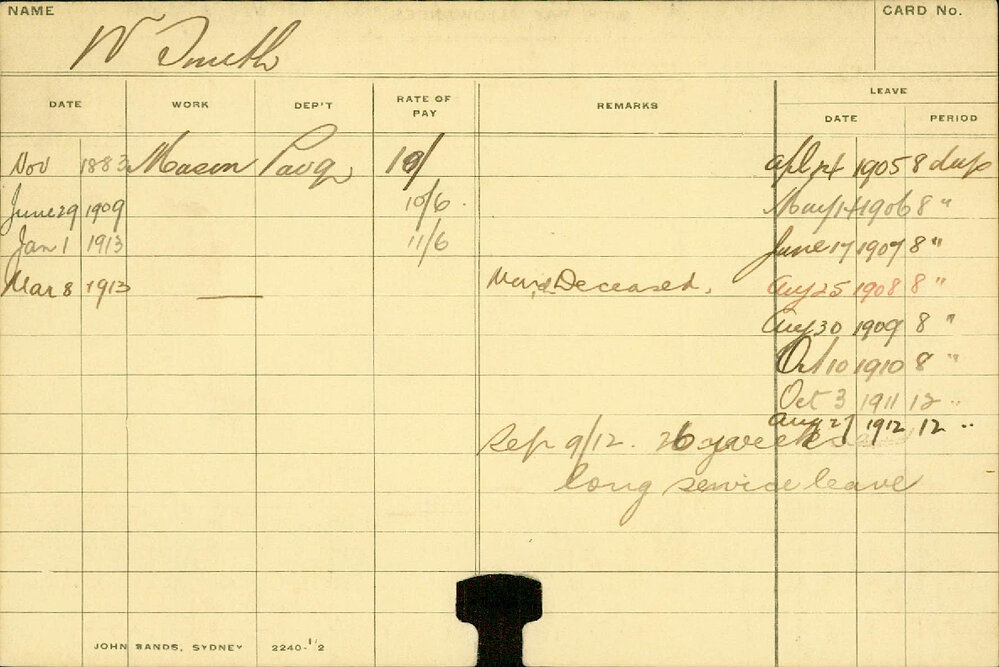 NAME CARD No.
W Smith
DATE WORK DEP'T RATE OF PAY REMARKS LEAVE
DATE PERIOD
Nov 1883 Mason 10/ Apl 24 1905 8 days
June 29 1909 10/6 May 14 1906 8 "
Jan 1 1913 11/6 June 17 1907 8 "
Mar 8 1913 — Deceased. Aug 25 1908 8 "
Aug 30 1909 8 "
Oct 10 1910 8 "
Oct 3 1911 12 "
Aug 27 1912 12 "
Sep 9/12. 26 weeks
long service leave
JOHN SANDS, SYDNEY 2240-1/2